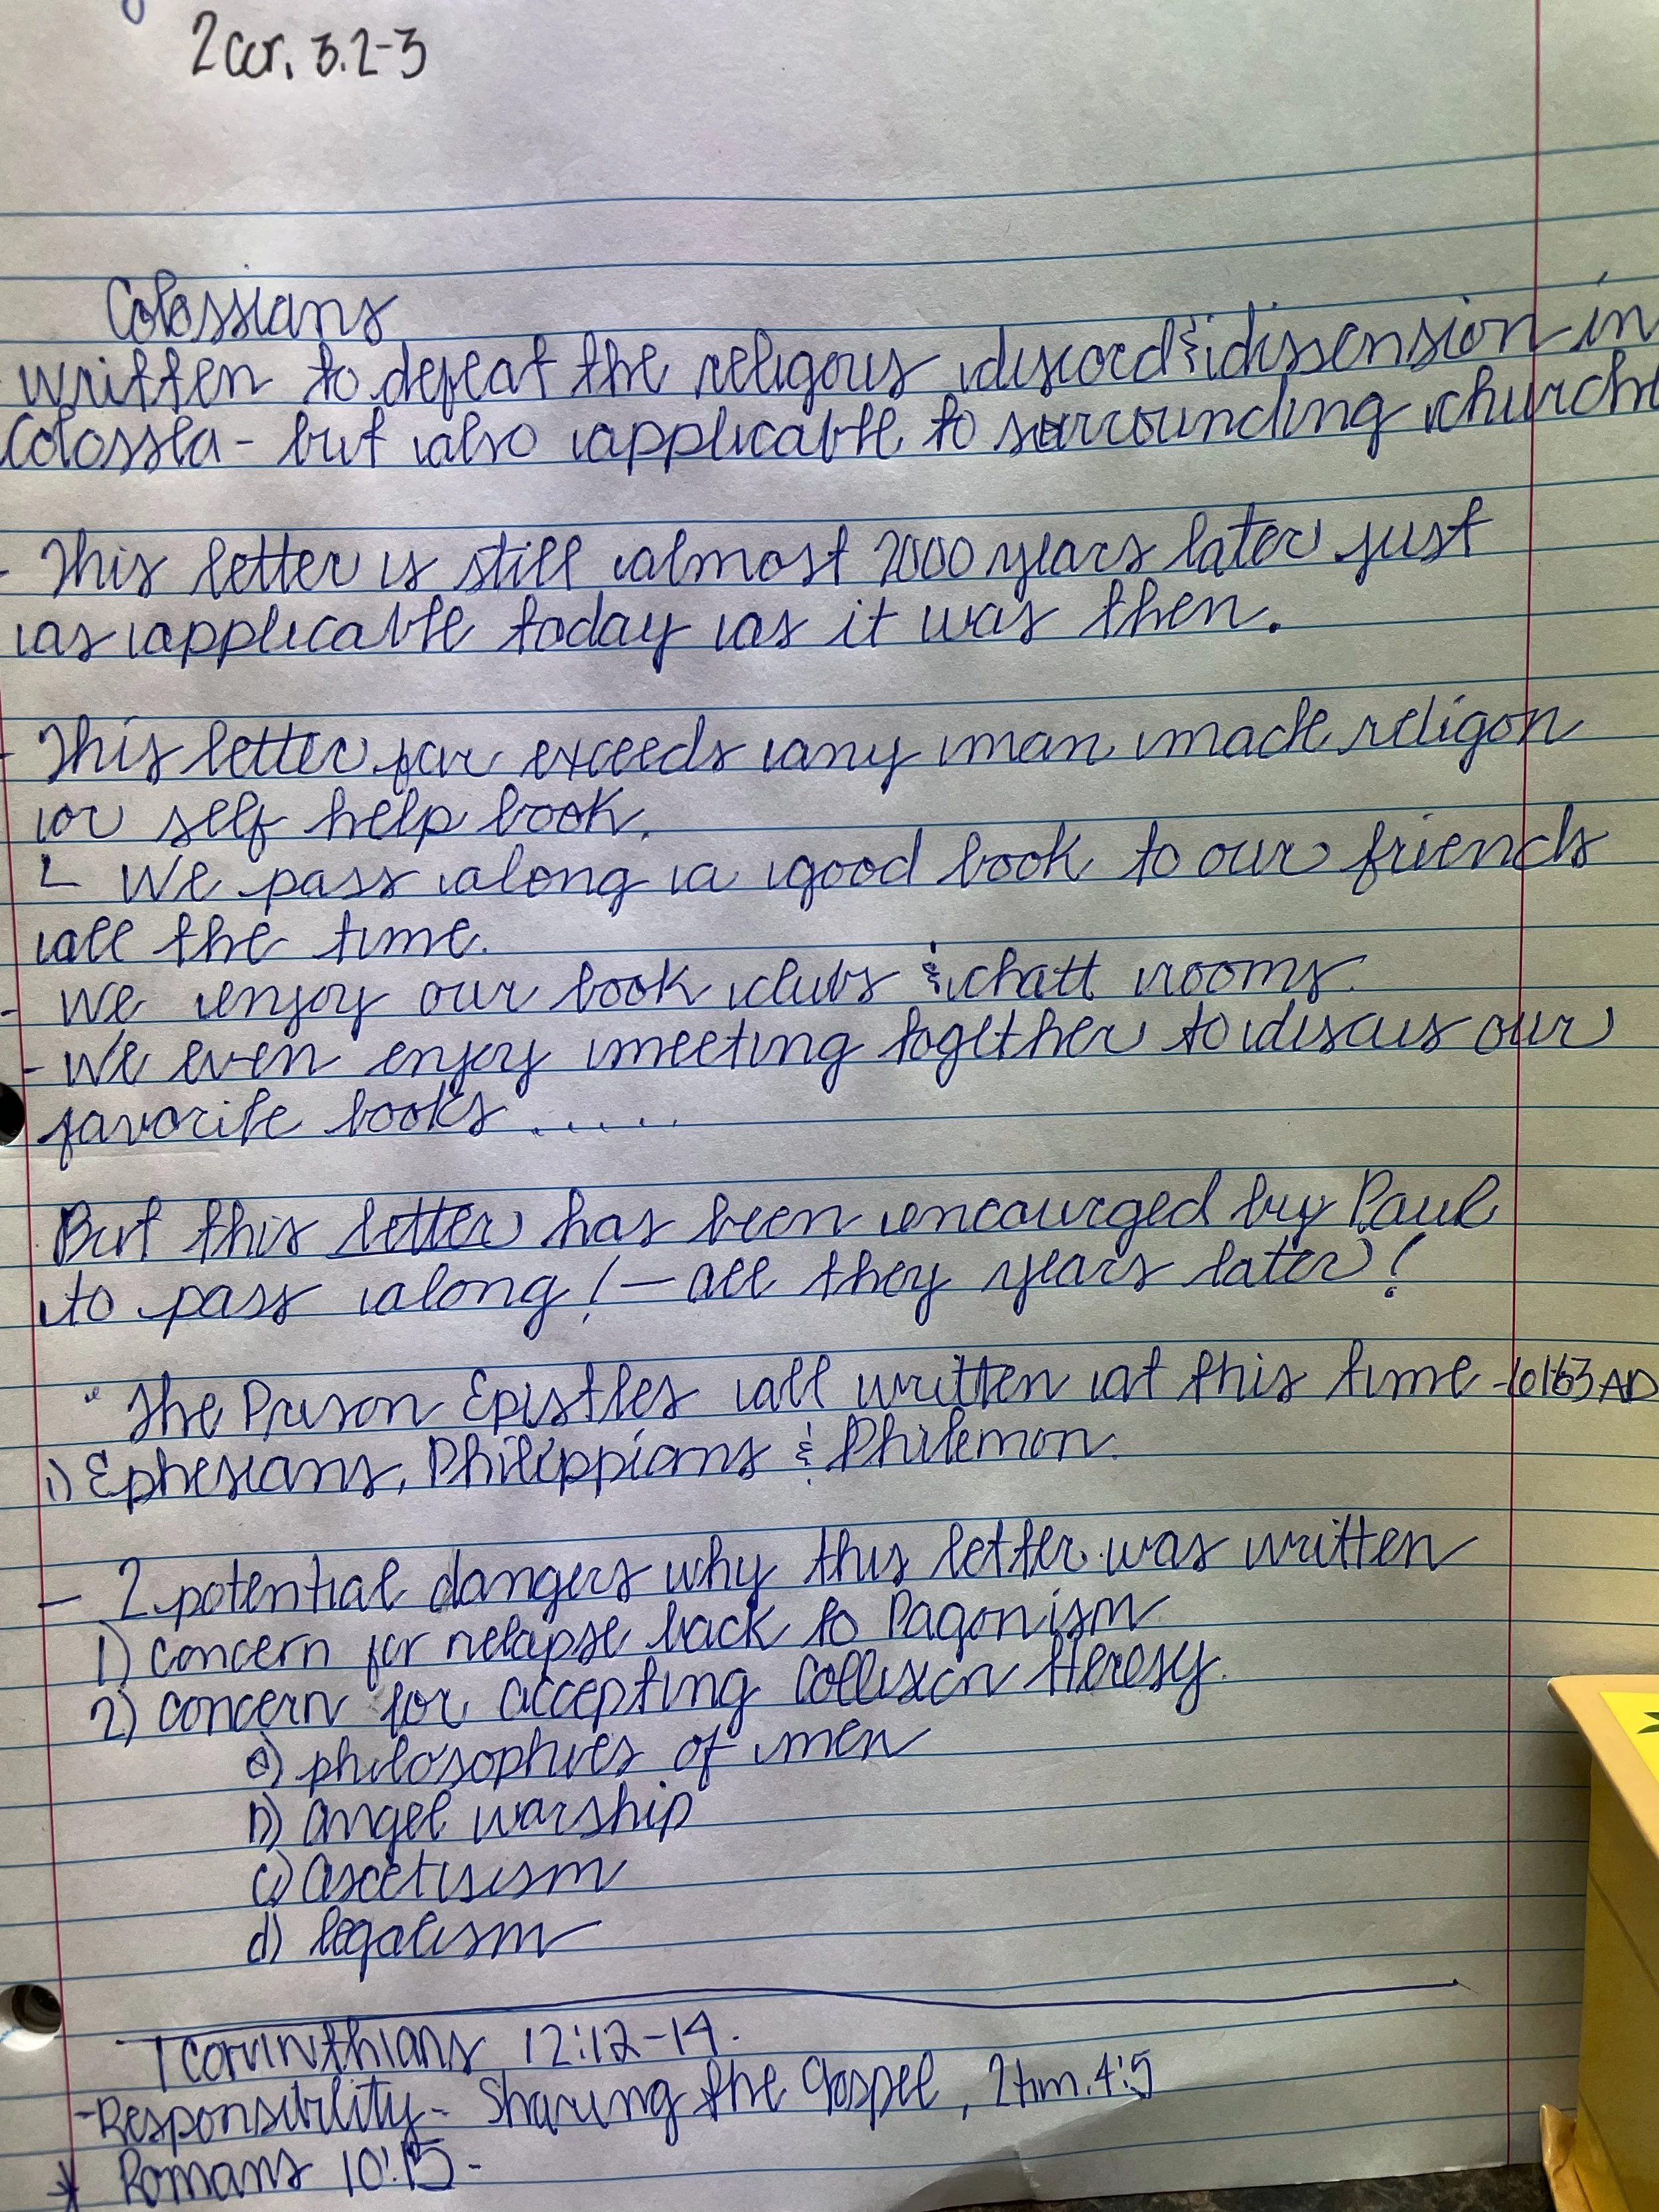 2 Cor. 3.2-3
Colossians
written to defeat the religous discord & dissension in
Colossea - but also applicable to surrounding church
- This letter is still almost 2000 years later just
as applicable today as it was then.
- This letter far exceeds any man made religon
or self help book.
L We pass along a good book to our friends
all the time.
- We enjoy our book clubs & chatt rooms.
- We even enjoy meeting together to discus our
favorite books .....
But this letter has been encourged by Paul
to pass along! - all they years later!
" The Prison Epistles all written at this time - 61-63 AD
1) Ephesians, Philippians & Philemon.
- 2 potential dangers why this letter was written
1) concern for relapse back to Pagonism
2) concern for accepting Heresy.
a) philosophies of men
b) angel warship
c) ascetisism
d) legalism
1 Corinthians 12:12-14.
- Responsibility - Sharing the Gospel, 2 tim. 4:5
* Romans 10:15 -